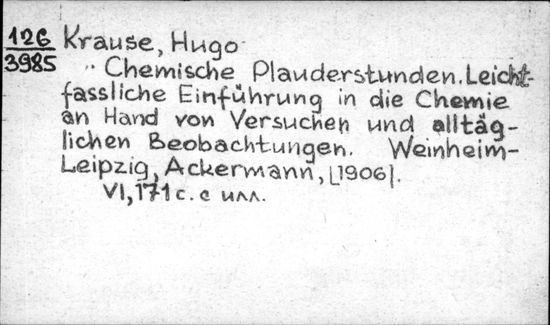 126 Krause, Hugo
3985 Chemische Plauderstunden. Leicht-
fassliche Einführung in die Chemie
an Hand von Versuchen und alltäg-
lichen Beobachtungen. Weinheim-
Leipzig, Ackermann, [1906].
VI, 171 с. с илл.